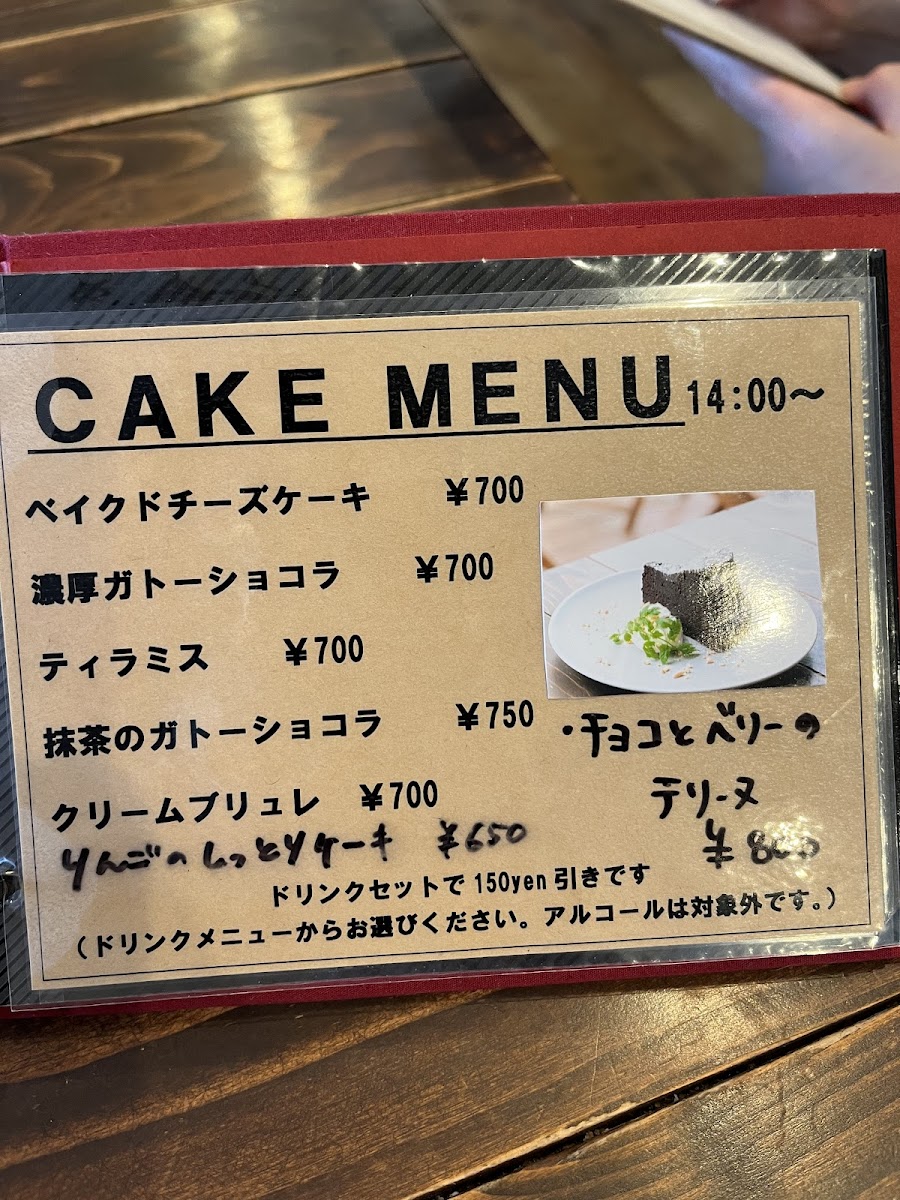 CAKE MENU 14:00～
ベイクドチーズケーキ ￥700
濃厚ガトーショコラ ￥700
ティラミス ￥700
抹茶のガトーショコラ ￥750
クリームブリュレ ￥700
りんごのしっとりケーキ ￥650
・チョコとベリーの
テリーヌ
￥800
ドリンクセットで150yen引きです
（ドリンクメニューからお選びください。アルコールは対象外です。）